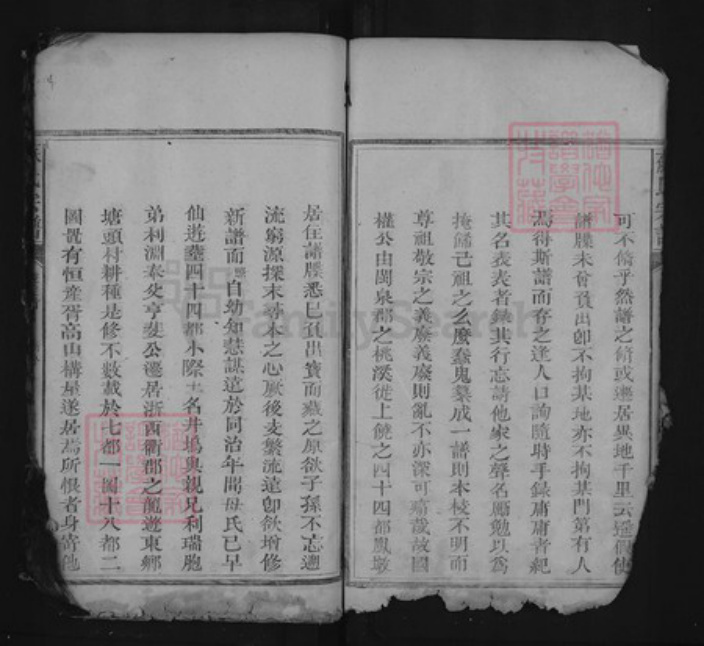 可不脩乎然譜之脩或遷居異地千里云遥倘他
譜牒未曾頒出卽不拘某地亦不拘某門第有人
焉得斯譜而存之逢人口詢隨時手録庸庸者紀
其名表表者錄其行忘請他家之聲名厮勉以爲
掩飾己祖之么麼蠢鬼纂成一譜則本枝不明而
尊祖敬宗之義廢義廢則亂不亦深可痛哉故國
權公由閩泉郡之桃溪徙上饒之四十四都鳳墩
居住譜牒悉已頒出寶而藏之原欲子孫不忘遡
流窮源探末尋本之心厥後支繁流遠卽欲增修
新譜而 自幼知慧謀遠於同治年間母氏已早
仙遊臺四十四都小際土名井塢與親兄利瑞胞
弟利淵奉父亨斐公遷居浙西衢郡之龍遊東鄉
塘頭村耕種是修不数載於七都一圖十八都二
圖旣有恒產胥高山構屋遂居焉所恨者身寄他
FamilySearch